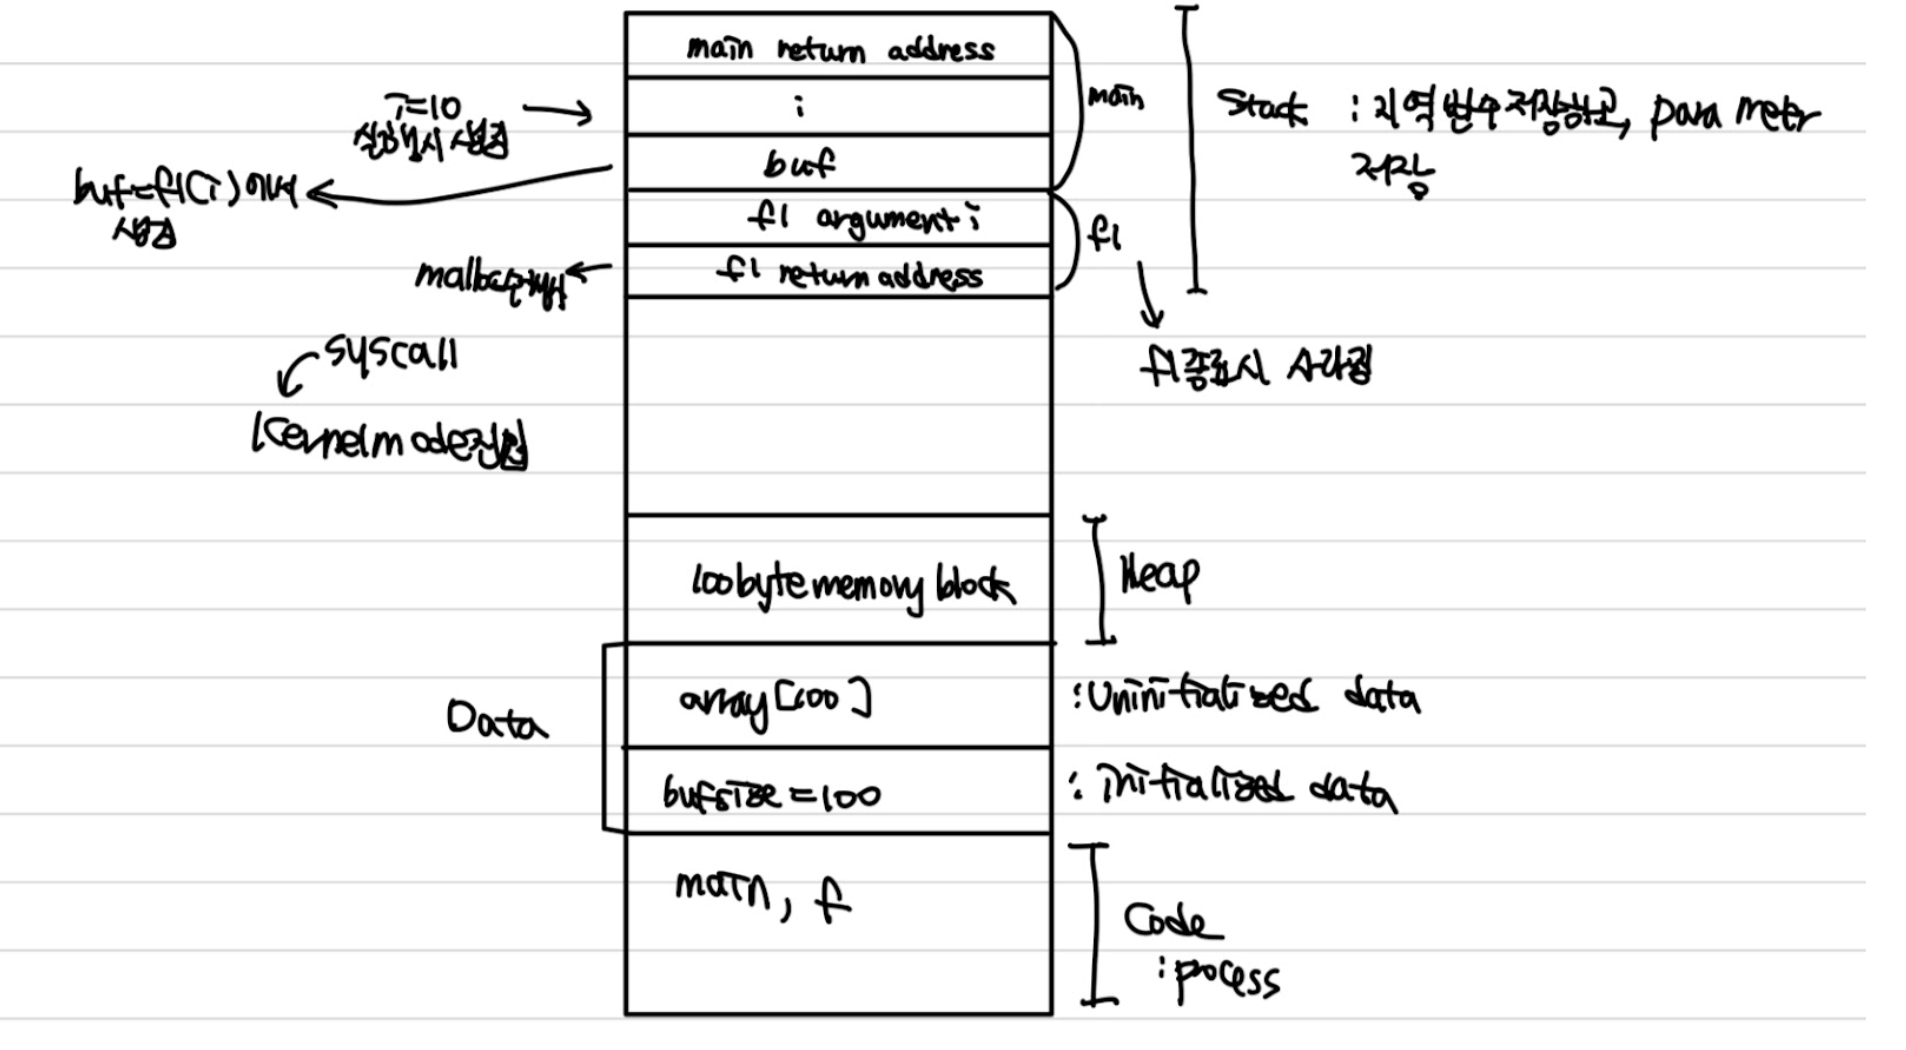 main return address
i
buf
f1 argument i
f1 return address
main
f1
Stack : 지역 변수 저장하고, parameter
저장
i=10
실행시 생성
buf=f1(i)에서
생성
syscall
Kernel mode진입
f1종료시 사라짐
100byte memory block
Heap
Data
array[100]
:Uninitialized data
bufsize=100
: initialized data
main, f
Code
:process